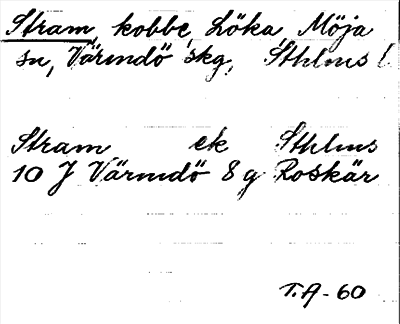 Stram, kobbe, Löka, Möja
sn, Värmdö skg, Sthlms l.
Stram ek Sthlms
10 J Värmdö 8 g Roskär
T.A-60